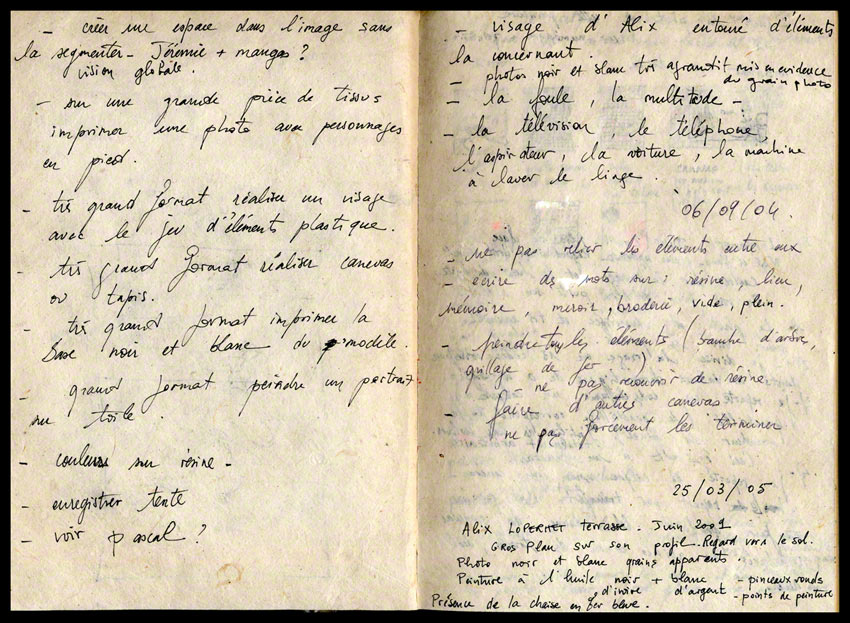 - créer une espace dans l'image sans
la segmenter - Jérémie + mangas ?
vision globale.
- sur une grande pièce de tissus
imprimer une photo avec personnages
en pied.
- très grand format réaliser un visage
avec le jeu d'éléments plastique.
- très grand format réaliser canevas
ou tapis.
- très grand format imprimer la
base noir et blanc du modèle.
- grand format peindre un portrait
sur toile.
- couleurs sur résine -
- enregistrer texte
- voir pascal ?
- visage d'Alix entouré d'éléments
la concernant.
- photos noir et blanc très agrandit mis en evidence
du grain photo
- la foule, la multitude -
- la télévision, le téléphone,
l'aspirateur, la voiture, la machine
à laver le linge.
06/09/04.
- ne pas relier les éléments entre eux
- écrire des mots sur : résine lieu,
mémoire, miroir, broderie, vide, plein.
- peindre les éléments (branche d'arbre,
grillage de fer)
ne pas recouvrir de résine
- faire d'autres canevas
ne pas forcément les terminer
25/03/05
Alix LOPERHET terrasse. Juin 2001
GROS PLAN sur son profil. Regard vers le sol.
Photo noir et blanc grains apparents.
Peinture à l'huile noir + blanc - pinceaux ronds
d'ivoire d'argent - points de peinture
Présence de la chaise en fer bleue.